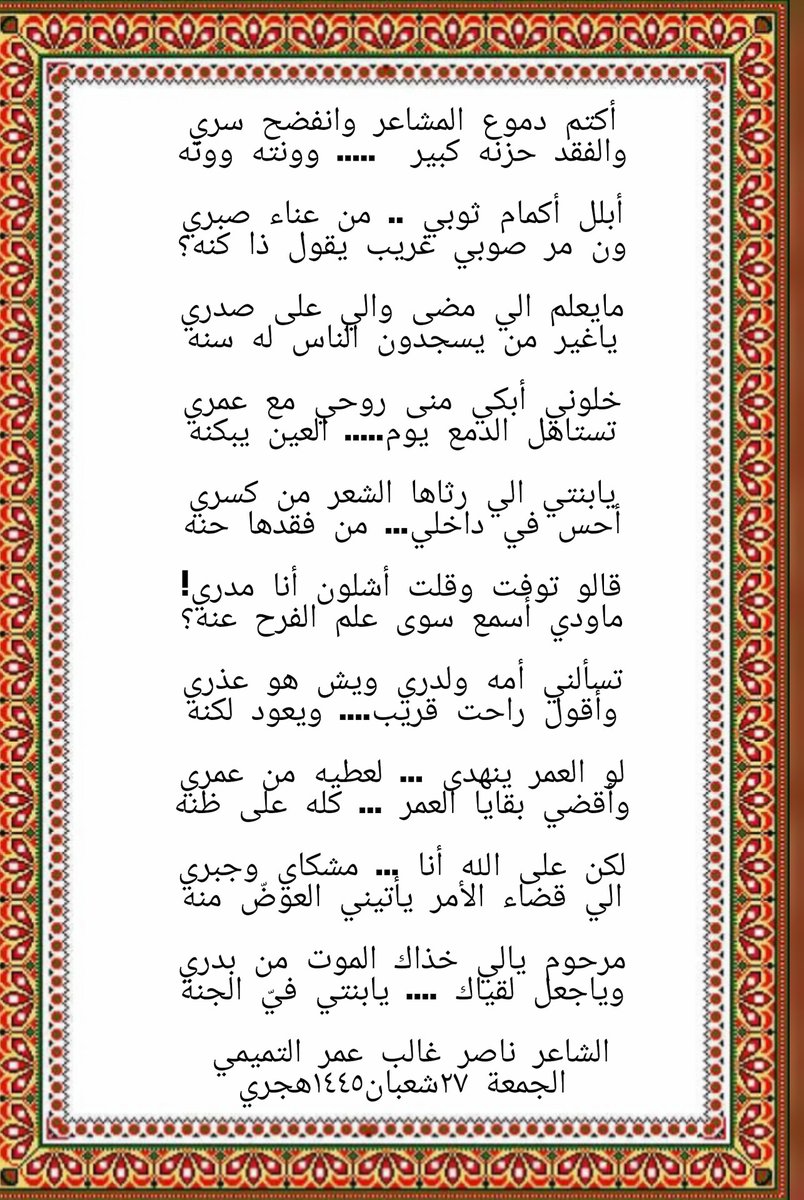 أكتم دموع المشاعر وانفضح سري
والفقد حزنه كبير ..... وونته وونّه
أبلل أكمام ثوبي .. من عناء صبري
ون مر صوبي غريب يقول ذا كنه؟
مايعلم الي مضى والي على صدري
ياغير من يسجدون الناس له سنه
خلوني أبكي منى روحي مع عمري
تستاهل الدمع يوم..... العين يبكنه
يابنتي الي رثاها الشعر من كسري
أحس في داخلي... من فقدها حنه
قالو توفت وقلت أشلون أنا مدري!
ماودي أسمع سوى علم الفرح عنه؟
تسألني أمه ولدري ويش هو عذري
وأقول راحت قريب.... ويعود لكنه
لو العمر ينهدى ... لعطيه من عمري
وأقضي بقايا العمر ... كله على ظنه
لكن على الله أنا ... مشكاي وجبري
الي قضاء الأمر يأتيني العوضّ منه
مرحوم يالي خذاك الموت من بدري
وياجعل لقياك .... يابنتي فيّ الجنه
الشاعر ناصر غالب عمر التميمي
الجمعة ٢٧شعبان١٤٤٥هجري